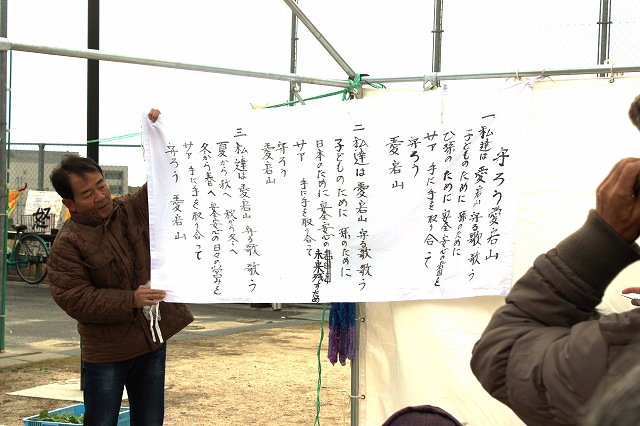 守ろう愛宕山
一 私達は 愛宕山 守る歌 歌う
子どものために 孫のために
ひ孫のために 安全安心の
サァ 手に手を取り合って
守ろう
愛宕山
二 私達は 愛宕山 守る歌 歌う
子どものために 孫のために
日本のために 安全安心の 未来残すため
サァ 手に手を取り合って
守ろう
愛宕山
三 私達は 愛宕山 守る歌 歌う
夏から秋へ 秋から冬へ
冬から春へ 安全安心の日々の営みを
サァ 手に手を取り合って
守ろう 愛宕山
怒